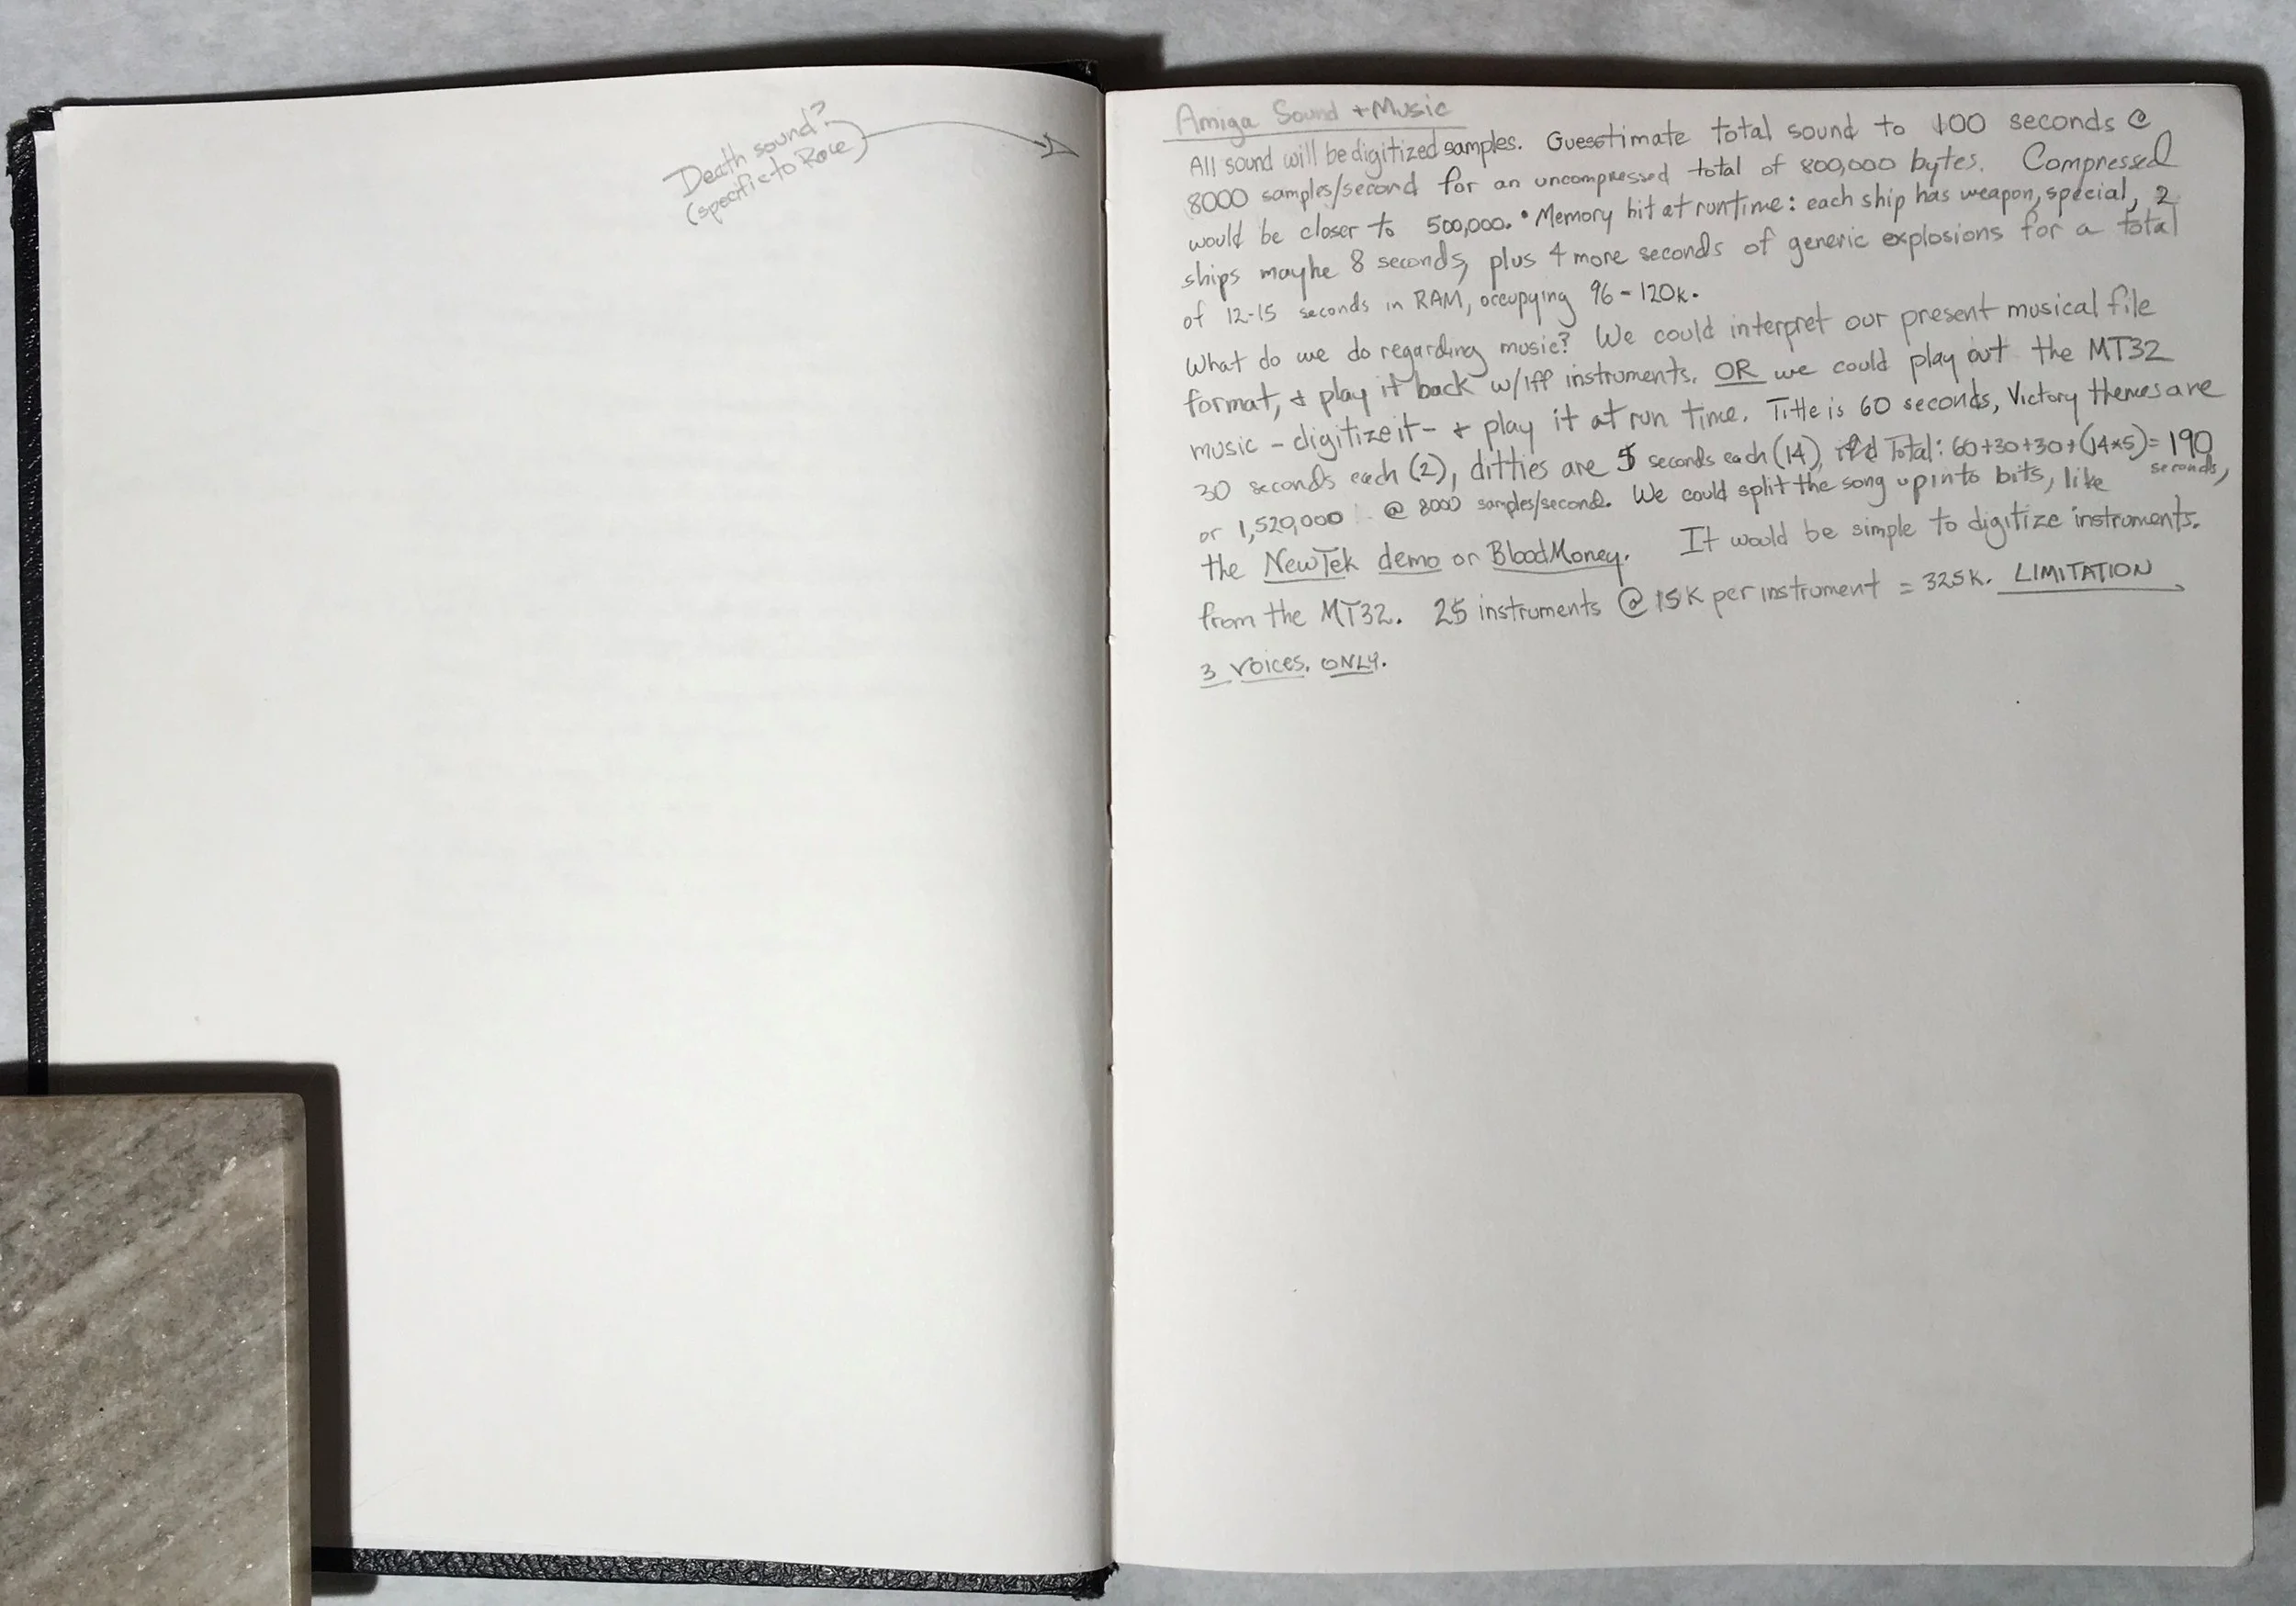 Death sound?
(specific to Race)
Amiga Sound + Music
All sound will be digitized samples. Guesstimate total sound to 100 seconds @
8000 samples/second for an uncompressed total of 800,000 bytes. Compressed
would be closer to 500,000. • Memory hit at runtime: each ship has weapon, special, 2
ships maybe 8 seconds, plus 4 more seconds of generic explosions for a total
of 12-15 seconds in RAM, occupying 96-120K.
What do we do regarding music? We could interpret our present musical file
format, + play it back w/iff instruments. OR we could play out the MT32
music - digitize it - + play it at run time. Title is 60 seconds, Victory themes are
30 seconds each (2), ditties are 5 seconds each (14), Total: 60+30+30+(14*5)= 190
seconds,
or 1,520,000 @ 8000 samples/second. We could split the song up into bits, like
the NewTek demo or BloodMoney. It would be simple to digitize instruments.
from the MT32. 25 instruments @ 15K per instrument = 325K. LIMITATION
3 voices. ONLY.